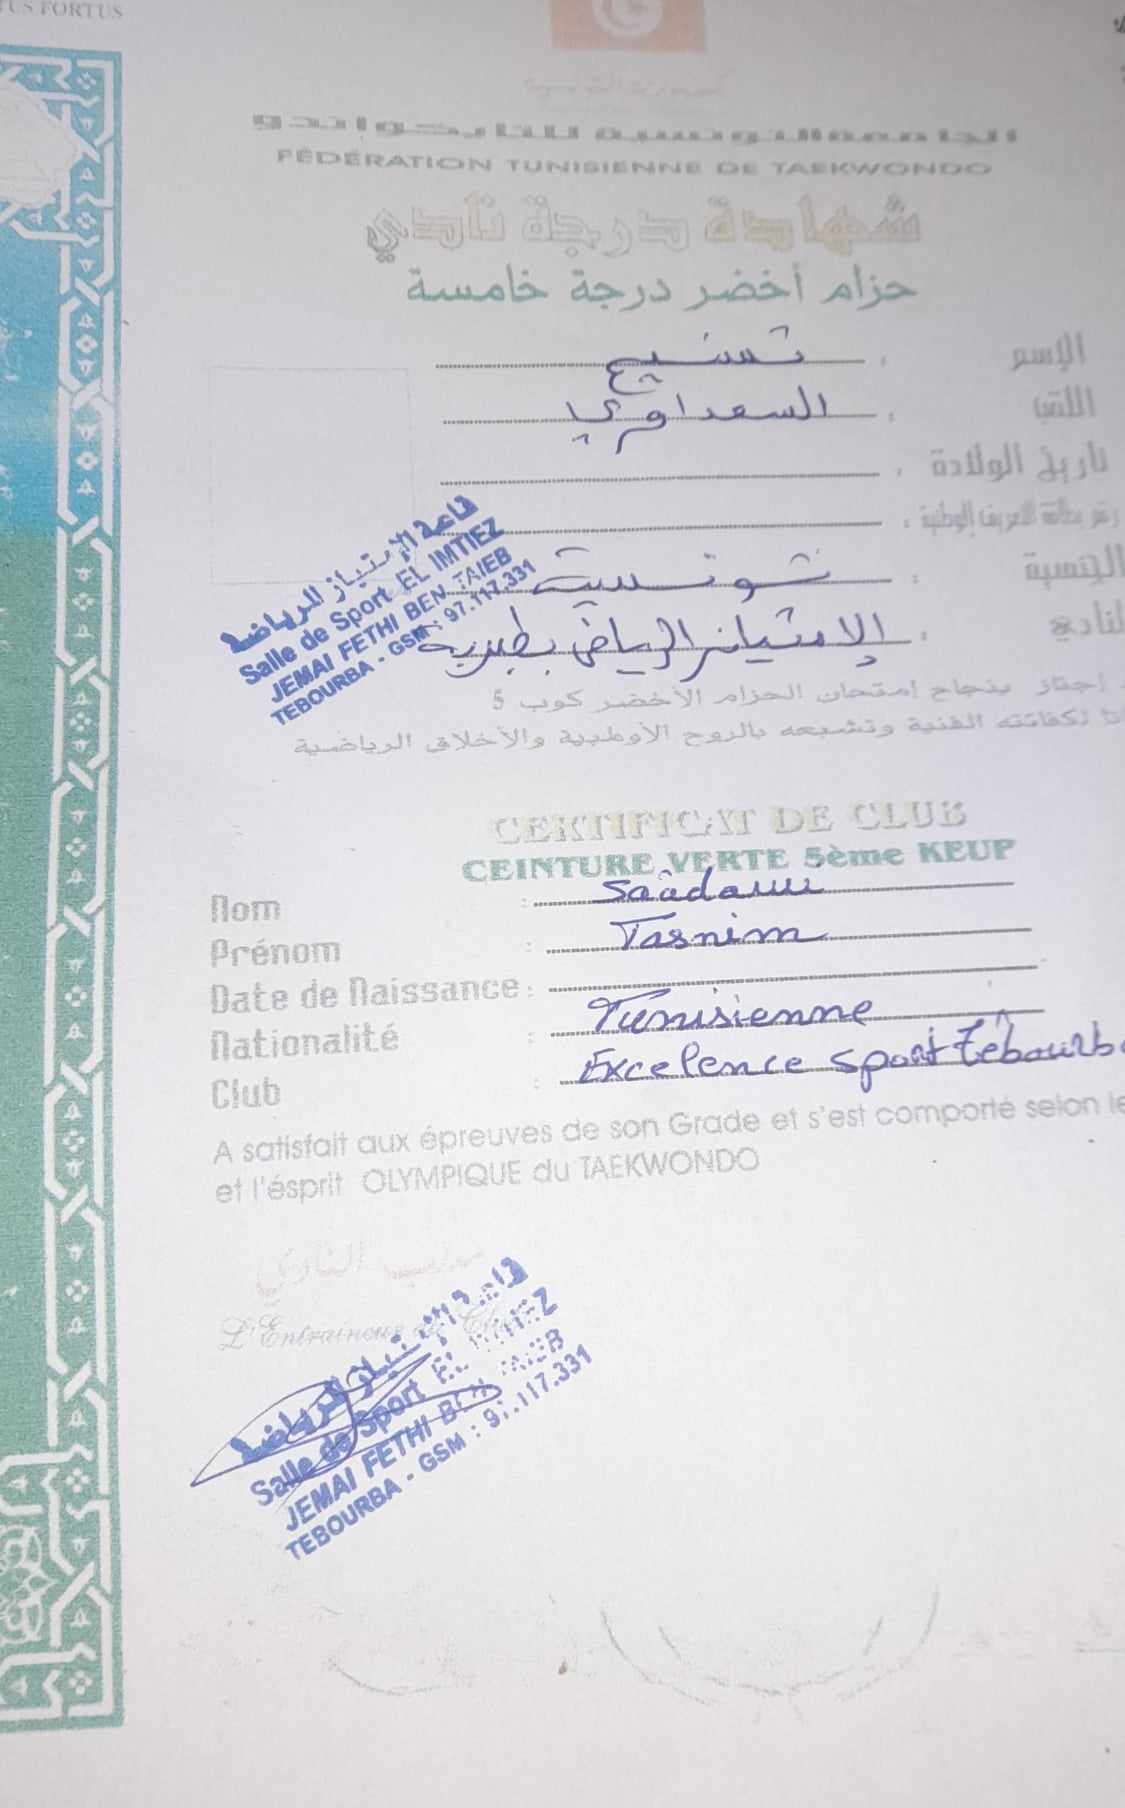 TUS FORTUS
الجمهورية التونسية
الجامعة التونسية للتايكواندو
FÉDÉRATION TUNISIENNE DE TAEKWONDO
شهادة درجة نادي
حزام أخضر درجة خامسة
الإسم : تسنيم
اللقب : السعداوي
تاريخ الولادة :
رقم بطاقة التعريف الوطنية :
الجنسية : تونسية
النادي : الإمتياز الرياضي بطبربة
قاعة الإمتياز للرياضة
Salle de Sport EL IMTIEZ
JEMAI FETHI BEN TAIEB
TEBOURBA - GSM : 97.117.331
إجتاز بنجاح إمتحان الحزام الأخضر كوب 5
لكفائته الفنية وتشبعه بالروح الأولمبية والأخلاق الرياضية
CERTIFICAT DE CLUB
CEINTURE VERTE 5ème KEUP
Nom : Saâdaoui
Prénom : Tasnim
Date de Naissance :
Nationalité : Tunisienne
Club : Excelence Sport Tébourba
A satisfait aux épreuves de son Grade et s'est comporté selon le
et l'ésprit OLYMPIQUE du TAEKWONDO
مدرب النادي
L'Entraineur de Club
قاعة الإمتياز للرياضة
Salle de Sport EL IMTIEZ
JEMAI FETHI BEN TAIEB
TEBOURBA - GSM : 97.117.331